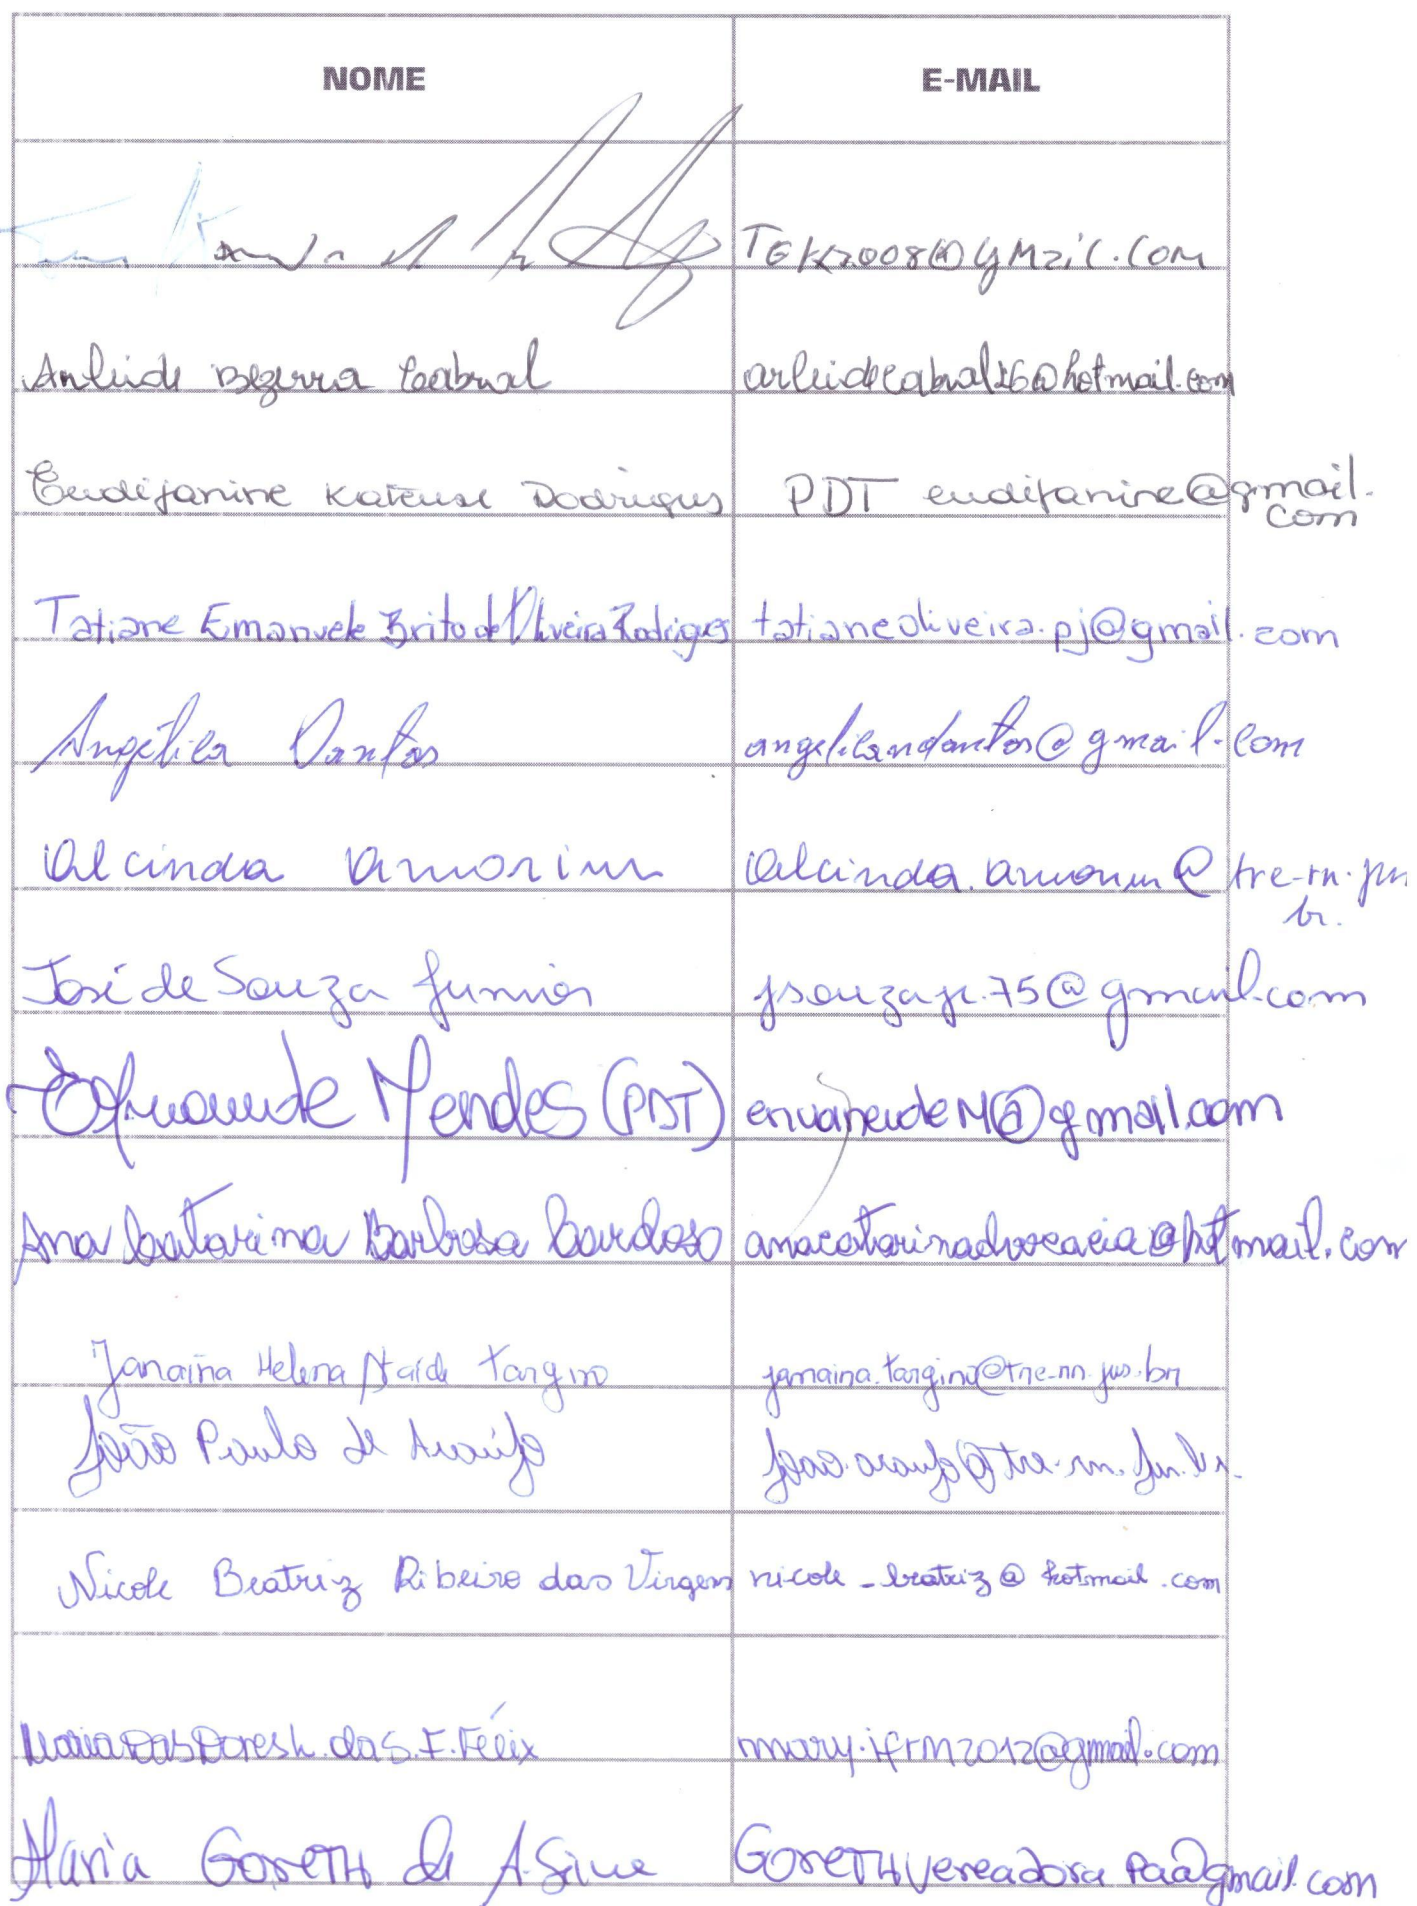 NOME E-MAIL
TEK2008@gmail.com
Arleide Bezerra Cabral arleidecabral26@hotmail.com
Eudijanine Kateuse Rodrigues PDT eudijanine@gmail.
com
Tatiane Emanuele Brito de Oliveira Rodrigues tatianeoliveira.pj@gmail.com
Angélica Dantas angelicandantas@gmail.com
Alcinda Amorim Alcinda.amorim@tre-rn.jus
br.
José de Souza Junior jsouzajr.75@gmail.com
Mendes (PDT) ervaneideM@gmail.com
Ana Catarina Barbosa Cardoso anacatarinadvocacia@hotmail.com
Janaína Helena Ataíde Targino janaina.targino@tre-rn.jus.br
João Paulo de Araújo joao.araujo@tre-rn.jus.br.
Nicole Beatriz Ribeiro das Virgens nicole_beatriz@hotmail.com
Maria Das Dores h. da S. F. Félix mmary.ifrn2012@gmail.com
Maria Goreth de A. Silva Gorethvereadora pa@gmail.com